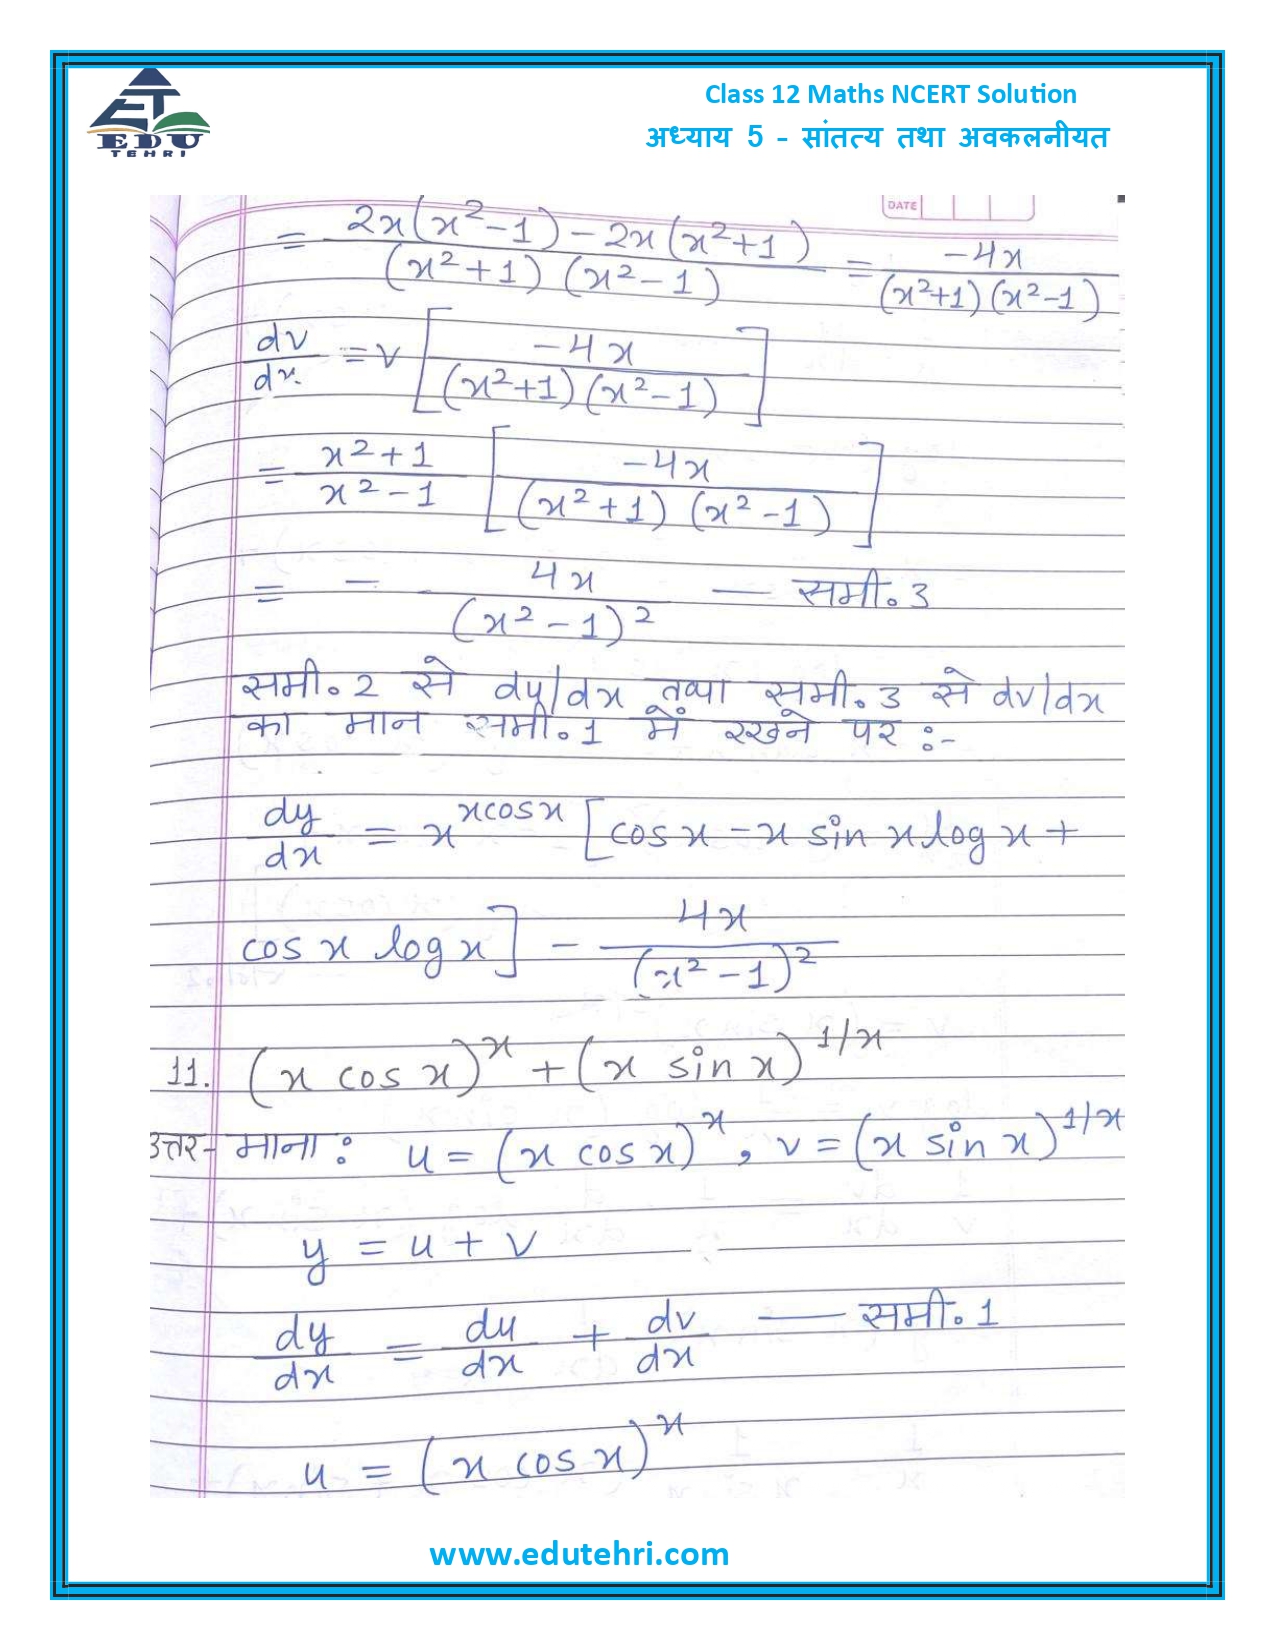 EDU
TEHRI
Class 12 Maths NCERT Solution
अध्याय 5 - सांतत्य तथा अवकलनीयत
DATE
= 2x(x²-1) - 2x(x²+1) / (x²+1) (x²-1) = -4x / (x²+1)(x²-1)
dv/dx = v [ -4x / (x²+1)(x²-1) ]
= x²+1 / x²-1 [ -4x / (x²+1) (x²-1) ]
= - 4x / (x²-1)² — समी. 3
समी. 2 से dy/dx तथा समी. 3 से dv/dx
का मान समी. 1 में रखने पर :-
dy/dx = x^(xcosx) [cosx - x sin x log x +
cosx log x] - 4x / (x²-1)²
11. (x cos x)^x + (x sin x)^1/x
उत्तर- माना: u = (x cosx)^x, v = (x sin x)^1/x
y = u + v
dy/dx = du/dx + dv/dx — समी. 1
u = (x cosx)^x
www.edutehri.com